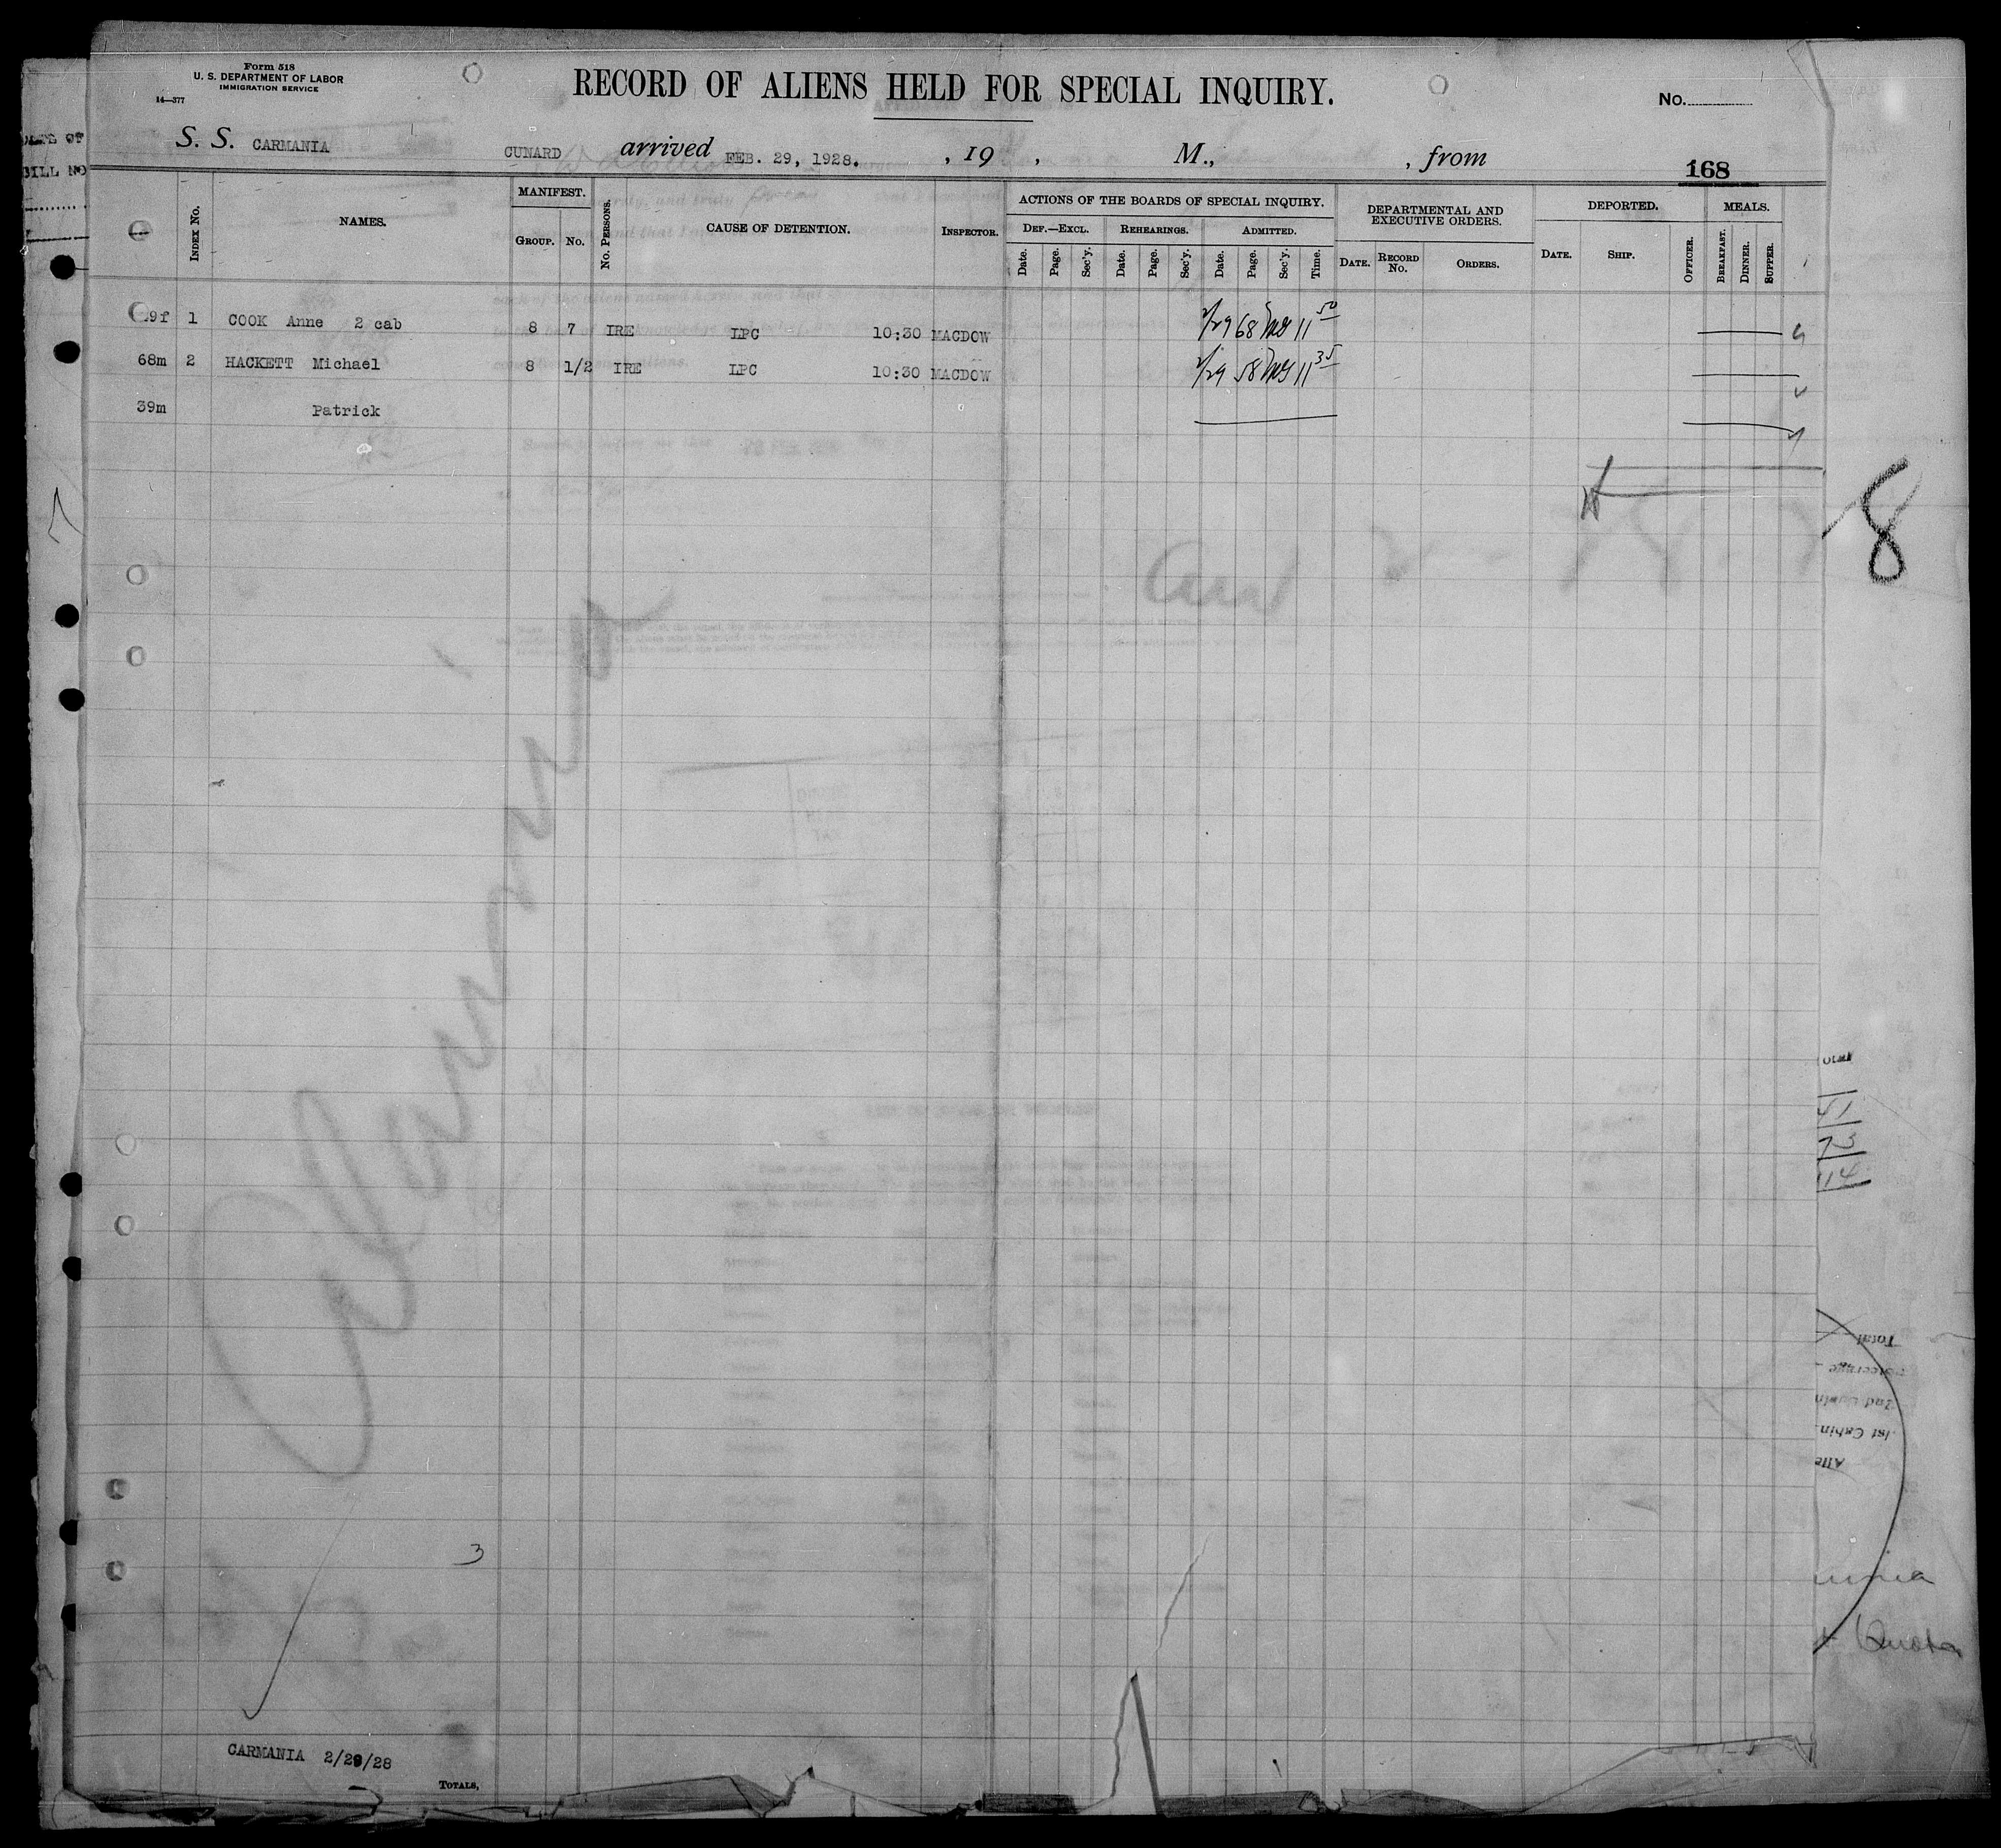 Form 518
U. S. DEPARTMENT OF LABOR
IMMIGRATION SERVICE
14—377
RECORD OF ALIENS HELD FOR SPECIAL INQUIRY.
No.
S. S. CARMANIA CUNARD arrived FEB. 29, 1928. , 19 , M., , from
168
BILL NO
INDEX NO.
NAMES.
MANIFEST.
GROUP. NO.
NO. PERSONS.
CAUSE OF DETENTION.
INSPECTOR.
ACTIONS OF THE BOARDS OF SPECIAL INQUIRY.
DEF.—EXCL. REHEARINGS. ADMITTED.
Date. Page. Sec'y. Date. Page. Sec'y. Date. Page. Sec'y. Time.
DEPARTMENTAL AND EXECUTIVE ORDERS.
DATE. RECORD No. ORDERS.
DEPORTED.
DATE. SHIP. OFFICER.
MEALS.
BREAKFAST. DINNER. SUPPER.
9f 1 COOK Anne 2 cab 8 7 IRE LPC 10:30 MACDOW 2/29 68 11 50
68m 2 HACKETT Michael 8 1/2 IRE LPC 10:30 MACDOW 2/29 58 11 35
39m Patrick
8
Carmania
41
73
114
Total
Steerage
2nd Cabin
1st Cabin
3
Quota
CARMANIA 2/29/28
TOTALS,